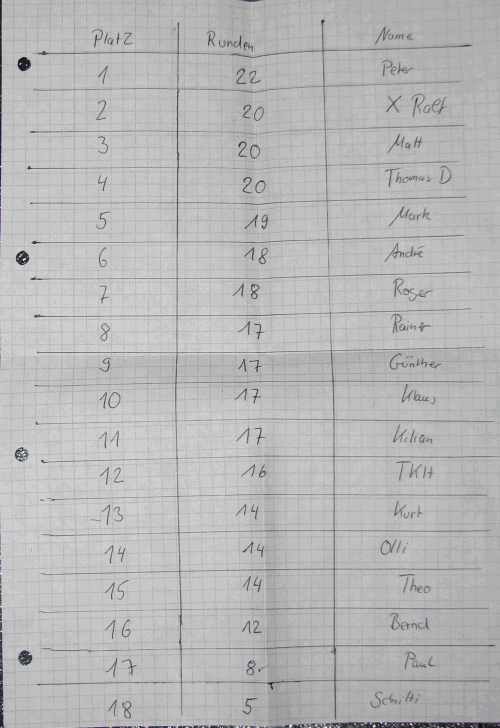 Platz Runden Name
1 22 Peter
2 20 X Ralf
3 20 Matt
4 20 Thomas D
5 19 Mark
6 18 André
7 18 Roger
8 17 Rainer
9 17 Günther
10 17 Klaus
11 17 Kilian
12 16 TKH
13 14 Kurt
14 14 Olli
15 14 Theo
16 12 Bernd
17 8 Paul
18 5